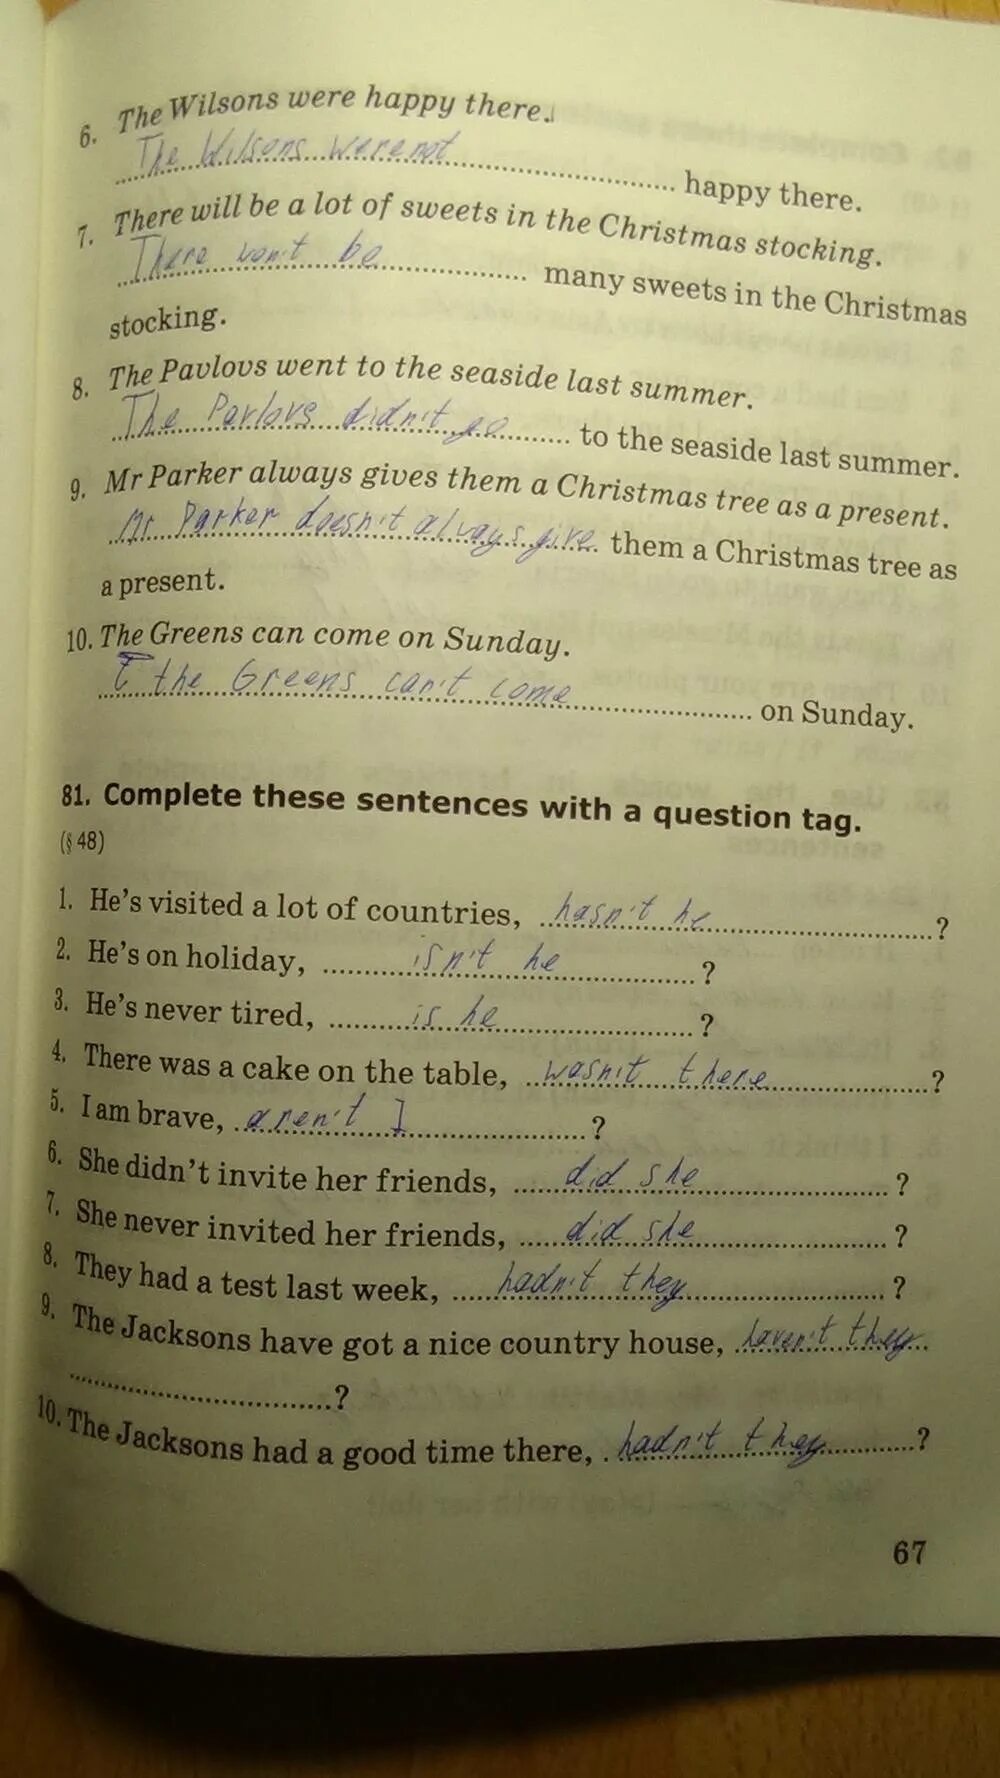 6. The Wilsons were happy there.
The Wilsons were not ........ happy there.
7. There will be a lot of sweets in the Christmas stocking.
There won't be ........ many sweets in the Christmas
stocking.
8. The Pavlovs went to the seaside last summer.
The Pavlovs didn't go ........ to the seaside last summer.
9. Mr Parker always gives them a Christmas tree as a present.
Mr Parker doesn't always give them a Christmas tree as
a present.
10. The Greens can come on Sunday.
the Greens can't come ........ on Sunday.
81. Complete these sentences with a question tag.
(§ 48)
1. He's visited a lot of countries, hasn't he ........?
2. He's on holiday, ........ isn't he ........?
3. He's never tired, ........ is he ........?
4. There was a cake on the table, wasn't there ........?
5. I am brave, aren't I ........?
6. She didn't invite her friends, ........ did she ........?
7. She never invited her friends, ........ did she ........?
8. They had a test last week, ........ hadn't they ........?
9. The Jacksons have got a nice country house, haven't they
........?
10. The Jacksons had a good time there, hadn't they ........?
67